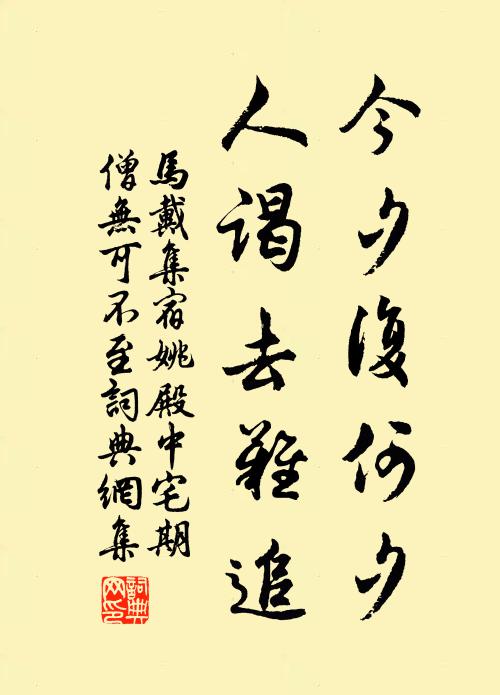 今夕復何夕
人謁去難追
馬戴集宿姚殿中宅期
僧無可不至詞典網集
詞典網印